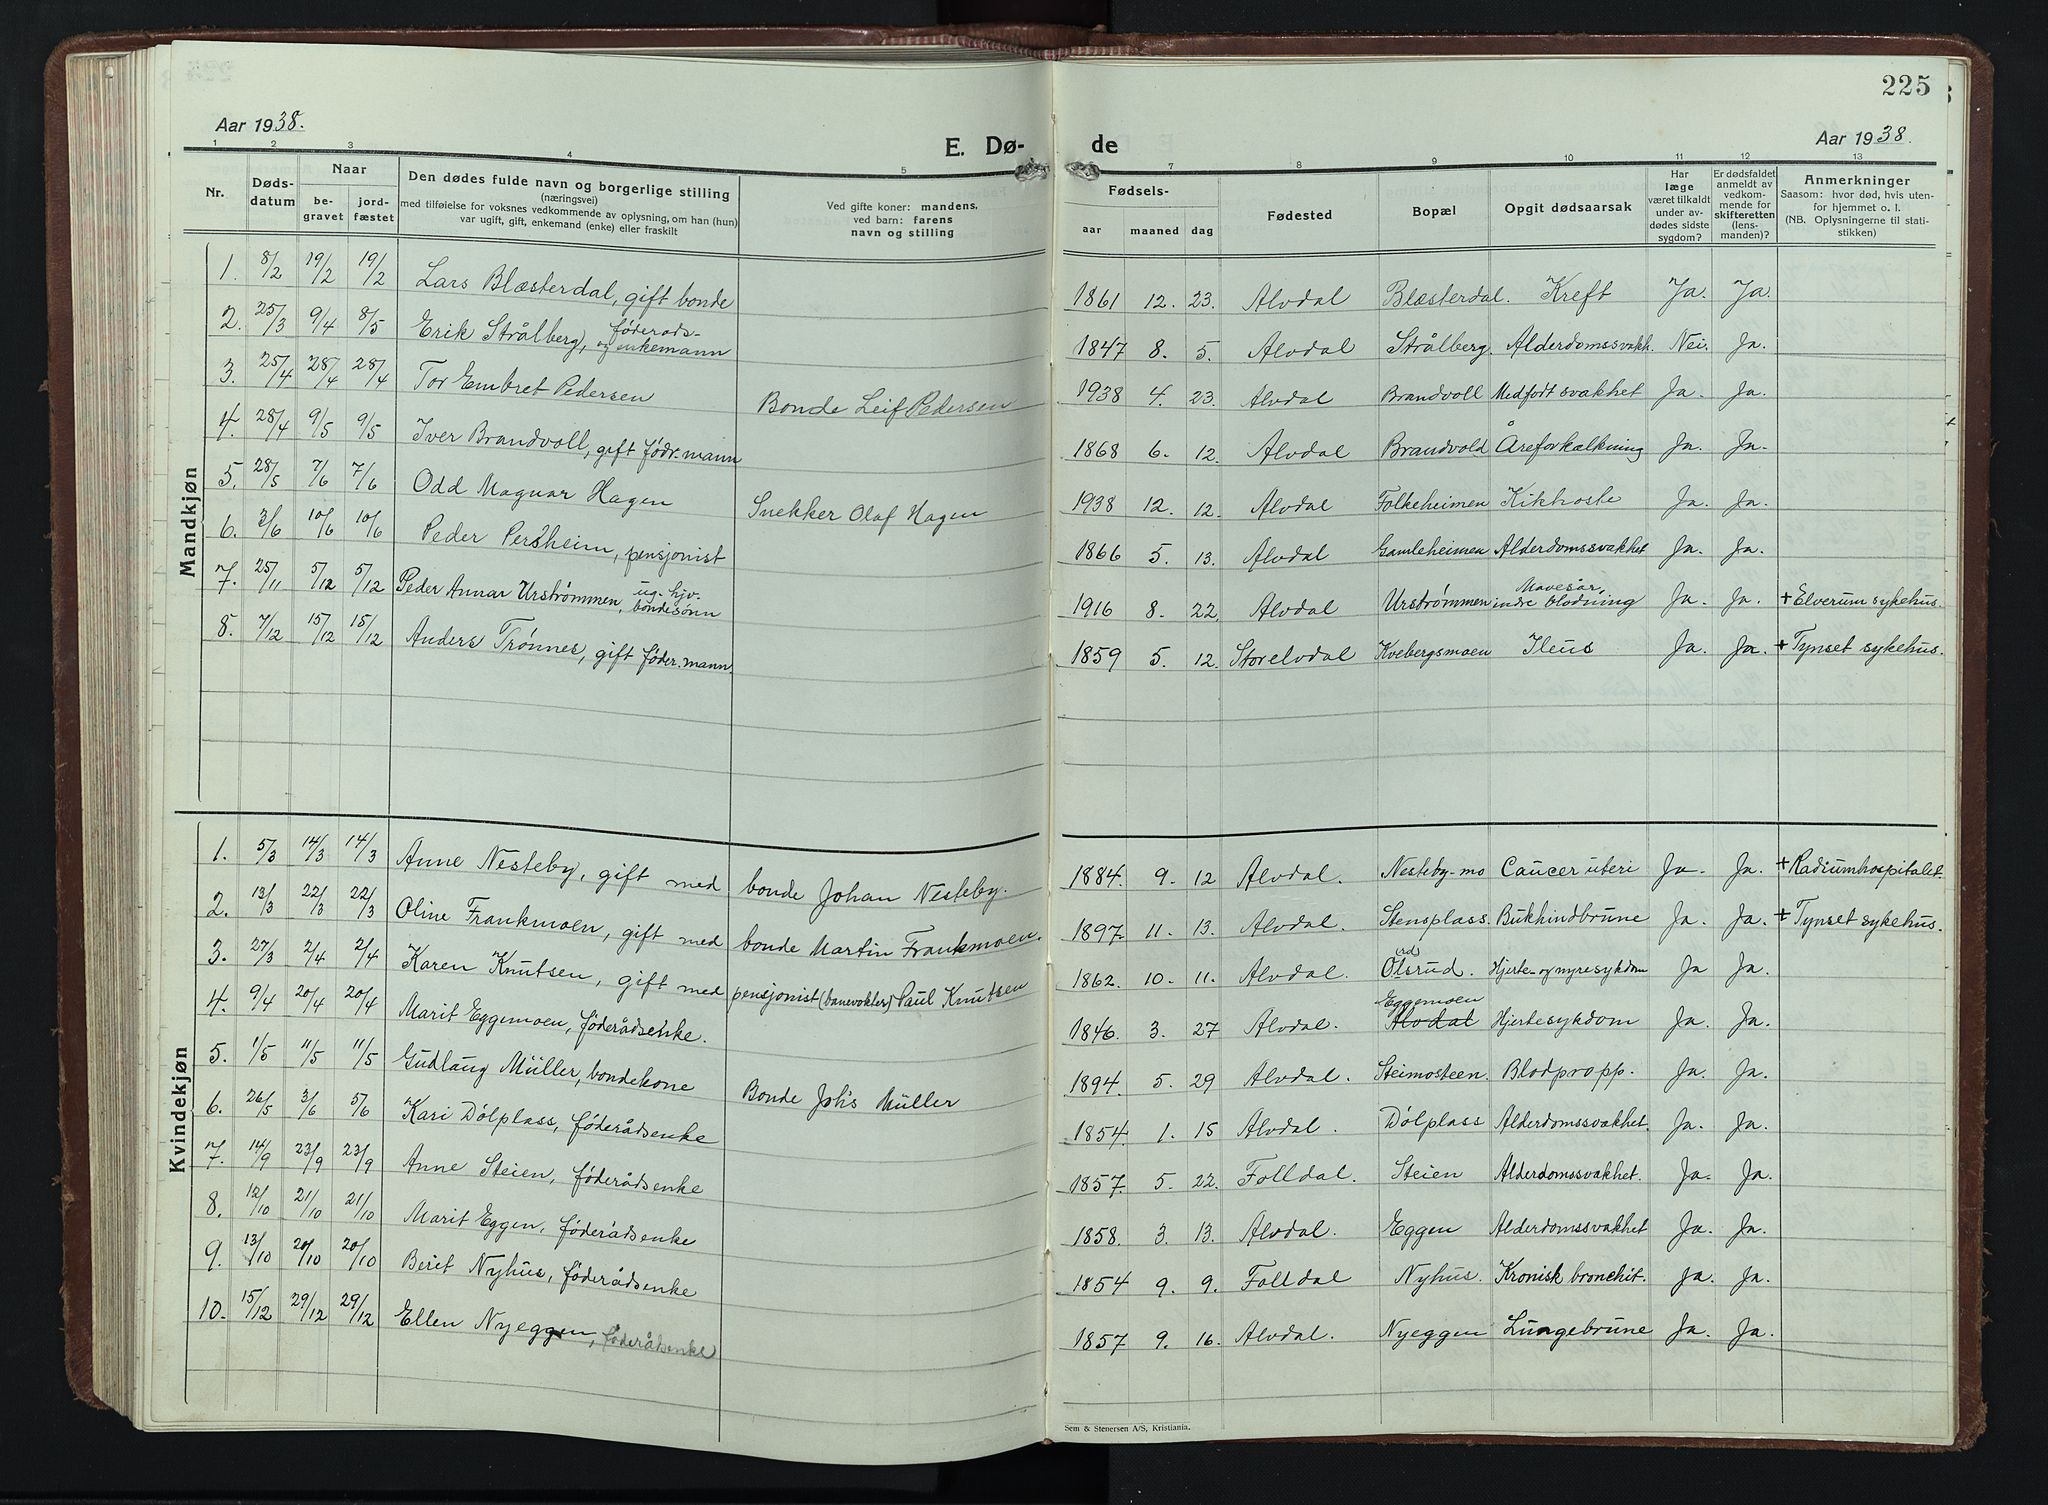 225
Aar 1938.
E. Dø-
de
Aar 1938.
1 2 3 4 5 7 8 9 10 11 12 13
Nr.
Døds-
datum
Naar
be-
gravet
jord-
fæstet
Den dødes fulde navn og borgerlige stilling
(næringsvei)
med tilføielse for voksnes vedkommende av oplysning, om han (hun)
var ugift, gift, enkemand (enke) eller fraskilt
Ved gifte koner: mandens,
ved barn: farens
navn og stilling
Fødsels-
aar maaned dag
Fødested
Bopæl
Opgit dødsaarsak
Har
læge
været tilkaldt
under av-
dødes sidste
sygdom?
Er dødsfaldet
anmeldt av
vedkom-
mende for
skifteretten
(lens-
manden)?
Anmerkninger
Saasom: hvor død, hvis uten-
for hjemmet o. l.
(NB. Oplysningerne til stati-
stikken)
Mandkjøn
1. 8/2 19/2 19/2 Lars Blæsterdal, gift bonde 1861 12. 23. Alvdal Blæsterdal. Kreft Ja. Ja.
2. 25/3 9/4 8/5 Erik Strålberg, føderads- og enkemann 1847 8. 5. Alvdal Strålberg. Alderdomssvakh. Nei. Ja.
3. 25/4 28/4 28/4 Tor Embret Pedersen Bonde Leif Pedersen 1938 4. 23. Alvdal Brandvoll Medfødt svakhet Ja. Ja.
4. 28/4 9/5 9/5 Iver Brandvoll, gift fødr.mann 1868 6. 12. Alvdal Brandvold Åreforkalkning Ja. Ja.
5. 28/5 7/6 7/6 Odd Magnar Hagen Snekker Olaf Hagen 1938 12. 12. Alvdal Folkeheimen Kikhoste Ja. Ja.
6. 3/6 10/6 10/6 Peder Persheim, pensjonist 1866 5. 13. Alvdal Gamleheimen Alderdomssvakhet Ja. Ja.
7. 25/11 5/12 5/12 Peder Annar Urstrømmen, ug. hjv. bondesønn 1916 8. 22. Alvdal Urstrømmen Mavesår, indre blødning Ja. Ja. + Elverum sykehus.
8. 7/12 15/12 15/12 Anders Trønnes, gift føder.mann. 1859 5. 12. Storelvdal Kvebergsmoen Ileus Ja. Ja. + Tynset sykehus.
Kvindekjøn
1. 5/3 14/3 14/3 Anne Nesteby, gift med bonde Johan Nesteby. 1884. 9. 12 Alvdal. Nesteby-mo Cancer uteri Ja. Ja. + Radiumhospitalet.
2. 13/3 22/3 22/3 Oline Frankmoen, gift med bonde Martin Frankmoen. 1897. 11. 13. Alvdal. Stensplass. Bukhindbrune Ja. Ja. + Tynset sykehus.
3. 27/3 2/4 2/4 Karen Knutsen, gift med pensjonist (banevokter) Paul Knutsen 1862. 10. 11. Alvdal. Olsrud. Hjerte- og nyresykdom Ja Ja.
4. 9/4 20/4 20/4 Marit Eggemoen, føderådsenke. 1846. 3. 27 Alvdal. Eggemoen Alvdal Hjertesykdom Ja. Ja.
5. 1/5 11/5 11/5 Gudlaug Müller, bondekone Bonde Johs Müller 1894. 5. 29 Alvdal. Steimosteen. Blodpropp. Ja. Ja.
6. 26/5 3/6 5/6 Kari Dølplass, føderådsenke 1854. 1. 15 Alvdal. Dølplass Alderdomssvakhet. Ja. Ja.
7. 14/9 23/9 23/9 Anne Steien, føderådsenke 1857. 5. 22. Folldal. Steien Alderdomssvakhet. Ja. Ja.
8. 12/10 21/10 21/10 Marit Eggen, føderådsenke 1858. 3. 13. Alvdal. Eggen Alderdomssvakhet Ja. Ja.
9. 13/10 20/10 20/10 Berit Nyhus, føderådsenke 1854 9. 9. Folldal Nyhus. Kronisk bronchit. Ja. Ja.
10. 15/12 29/12 29/12 Ellen Nyeggen, føderådsenke 1857 9. 16. Alvdal. Nyeggen Lungebrune Ja. Ja.
Sem & Stenersen A/S, Kristiania.